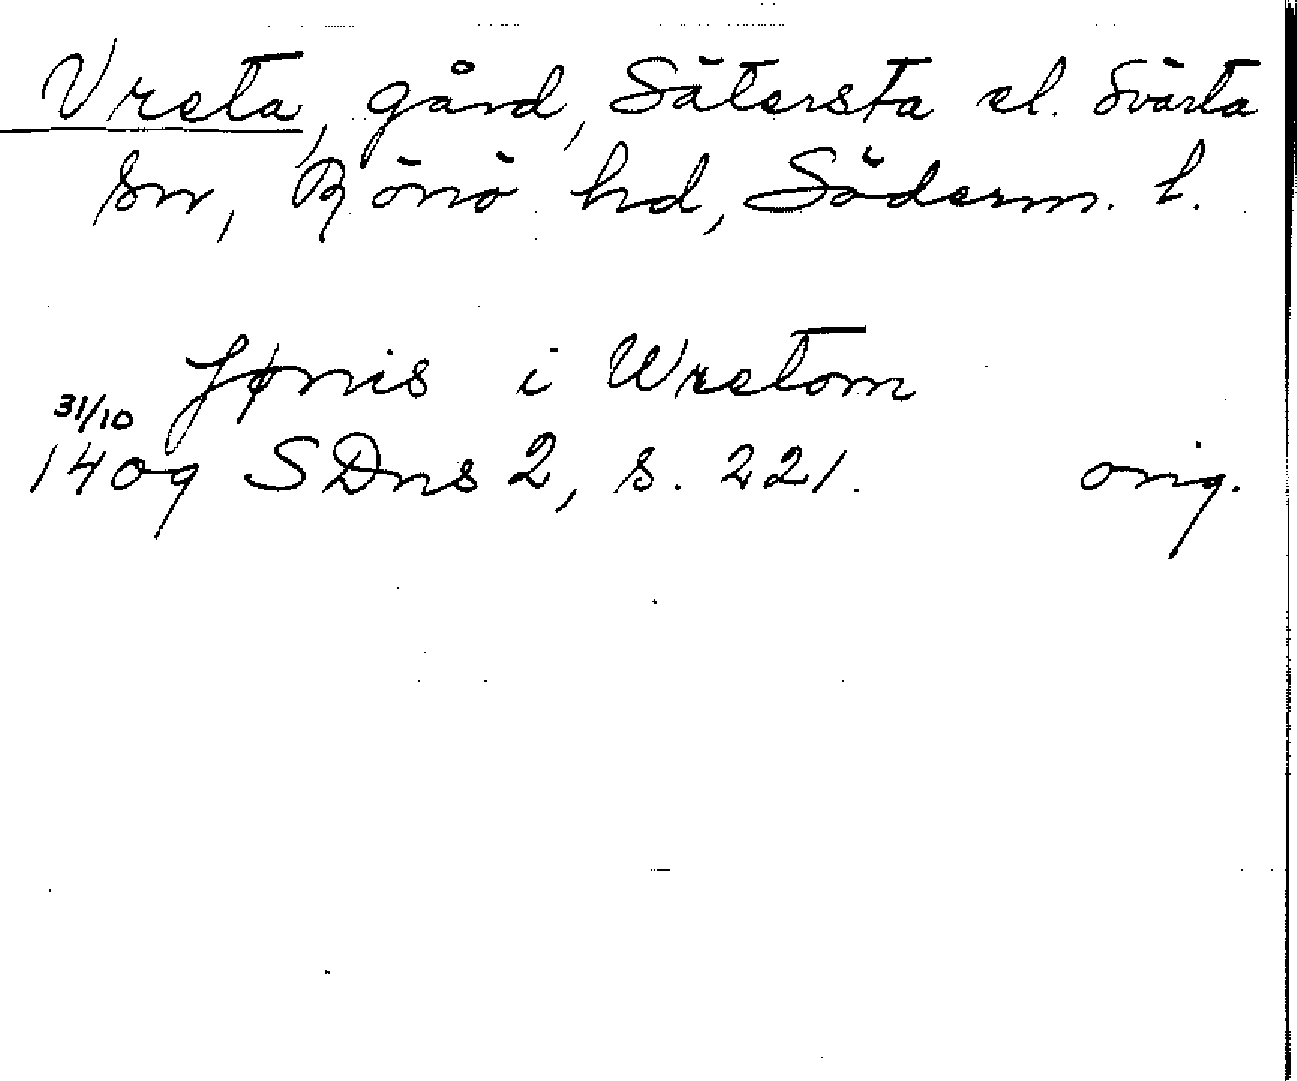 Vreta, gård, Sätersta el. Svärta
sn, Rönö hd, Söderm. l.
Jønis i Wretom
31/10
1409 SDns 2, s. 221. orig.